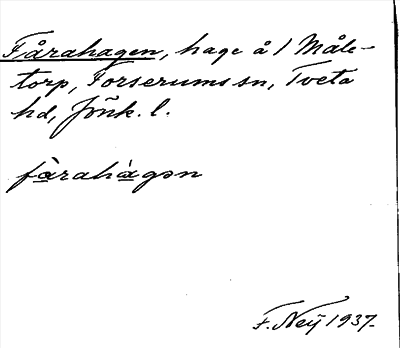 Fårahagen, hage å 1 Måle-
torp, Forserums sn, Tveta
hd, Jönk. l.
fàrahàgən
F. Neÿ 1937.